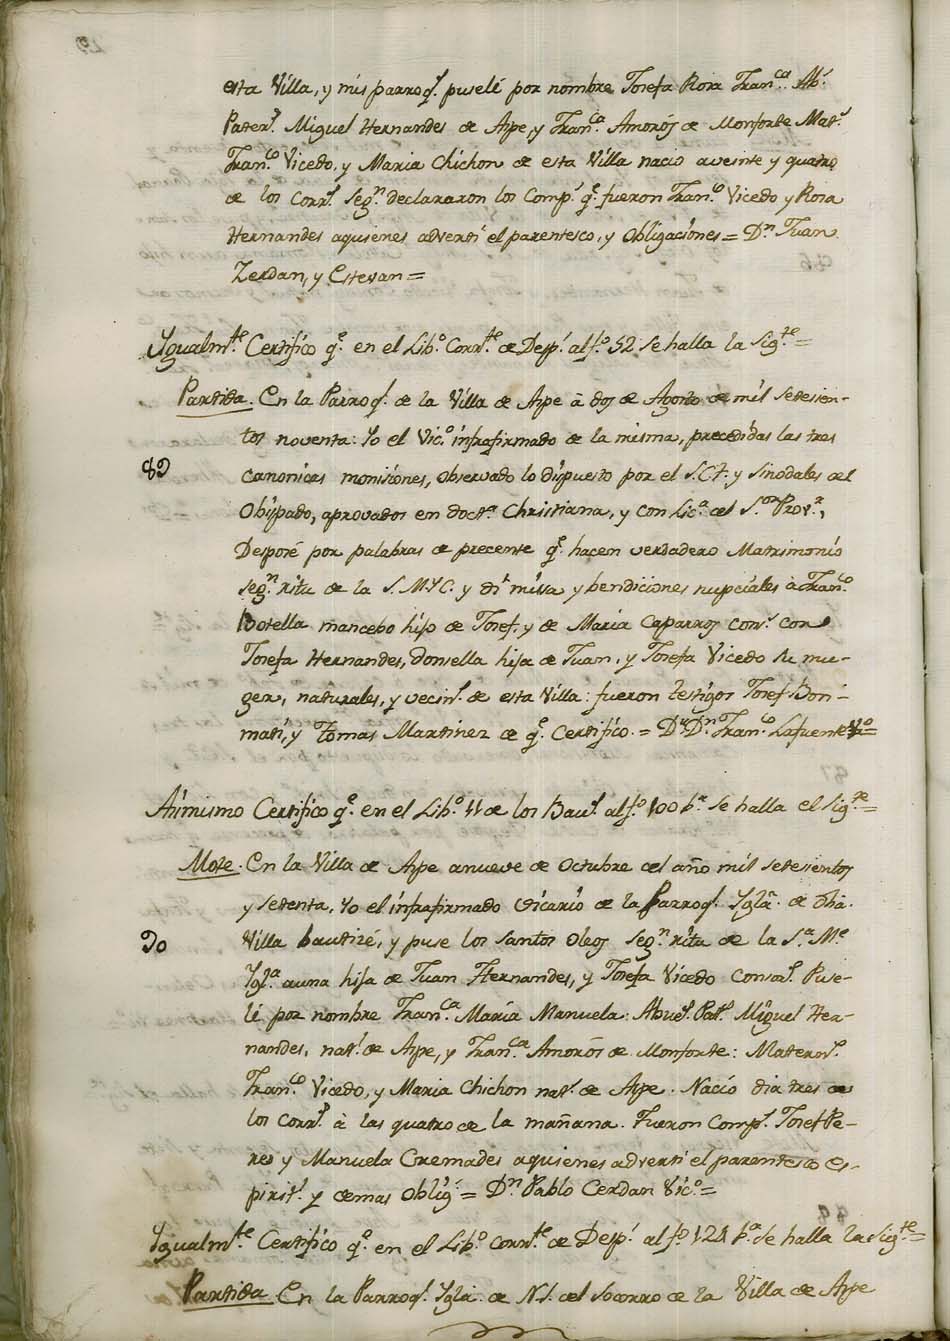 esta Villa, y mis parroqs. puselé por nombre Josefa Rosa Franca. Abs.
Paters. Miguel Hernandes de Aspe, y Franca. Amorós de Monforte Mats.
Franco. Vicedo, y Maria Chichon de esta Villa nacio aveinte y quatro
de los Corrs. segn. declararon los Comps. qe. fueron Franco. Vicedo y Rosa
Hernandes aquienes advertí el parentesco, y Obligaciones = Dn. Juan
Zerdan, y Estevan =
Ygualmte. Certifico qe. en el Libo. Corrte. de Desps. al fo. 52 se halla la sigte. =
Partida. En la Parroql. de la Villa de Aspe à dos de Agosto de mil setesien-
tos noventa: Yo el Vico. infrafirmado de la misma, precedidas las tres
89
canonicas monisiones, observado lo dispuesto por el S.C.T. y Sinodales del
Obispado, aprovados en docta. Christiana, y con Lica. del Sor. Provr.,
Desposé por palabras de precente qe. hacen verdadero Matrimonio
segn. ritu de la S.M.Y.C. y di missa y bendiciones nupciales à Franco.
Botella mancebo hijo de Josef, y de Maria Caparros cons. con
Josefa Hernandes, donsella hija de Juan, y Josefa Vicedo su mu-
ger, naturales, y vecins. de esta Villa: fueron testigos Josef Bon-
mati, y Tomas Martinez de qe. Certifico. = Dr. Dn. Franco. Lafuente Vo. =
Asimismo Certifico qe. en el Libo. 11 de los Baus. al fo. 100 ba. se halla el sigte. =
Mote. En la Villa de Aspe anueve de Octubre del año mil setesientos
y setenta, Yo el infrafirmado Vicario de la Parroql. Ygla. de dha.
90
Villa bautizé, y puse los santos Oleos segn. ritu de la Sa. Me.
Ygla. auna hija de Juan Hernandes, y Josefa Vicedo Consors. Puse-
lé por nombre Franca. María Manuela: Abues. Pats. Miguel Her-
nandes, nats. de Aspe, y Franca. Amorós de Monforte: Materns.
Franco. Vicedo, y Maria Chichon nats. de Aspe. Nacio dia tres de
los Corrs. à las quatro de la mañana. Fueron Comps. Josef Pe-
res y Manuela Cremades aquienes advertí el parentesco es-
pirits. y demas oblig. = Dn. Pablo Cerdan Vico. =
Ygualmte. Certifico qe. en el Libo. corrte. de Desps. al fo. 121 ba. se halla la sigte. =
Partida En la Parroql. Ygla. de N.S. del Socorro de la Villa de Aspe